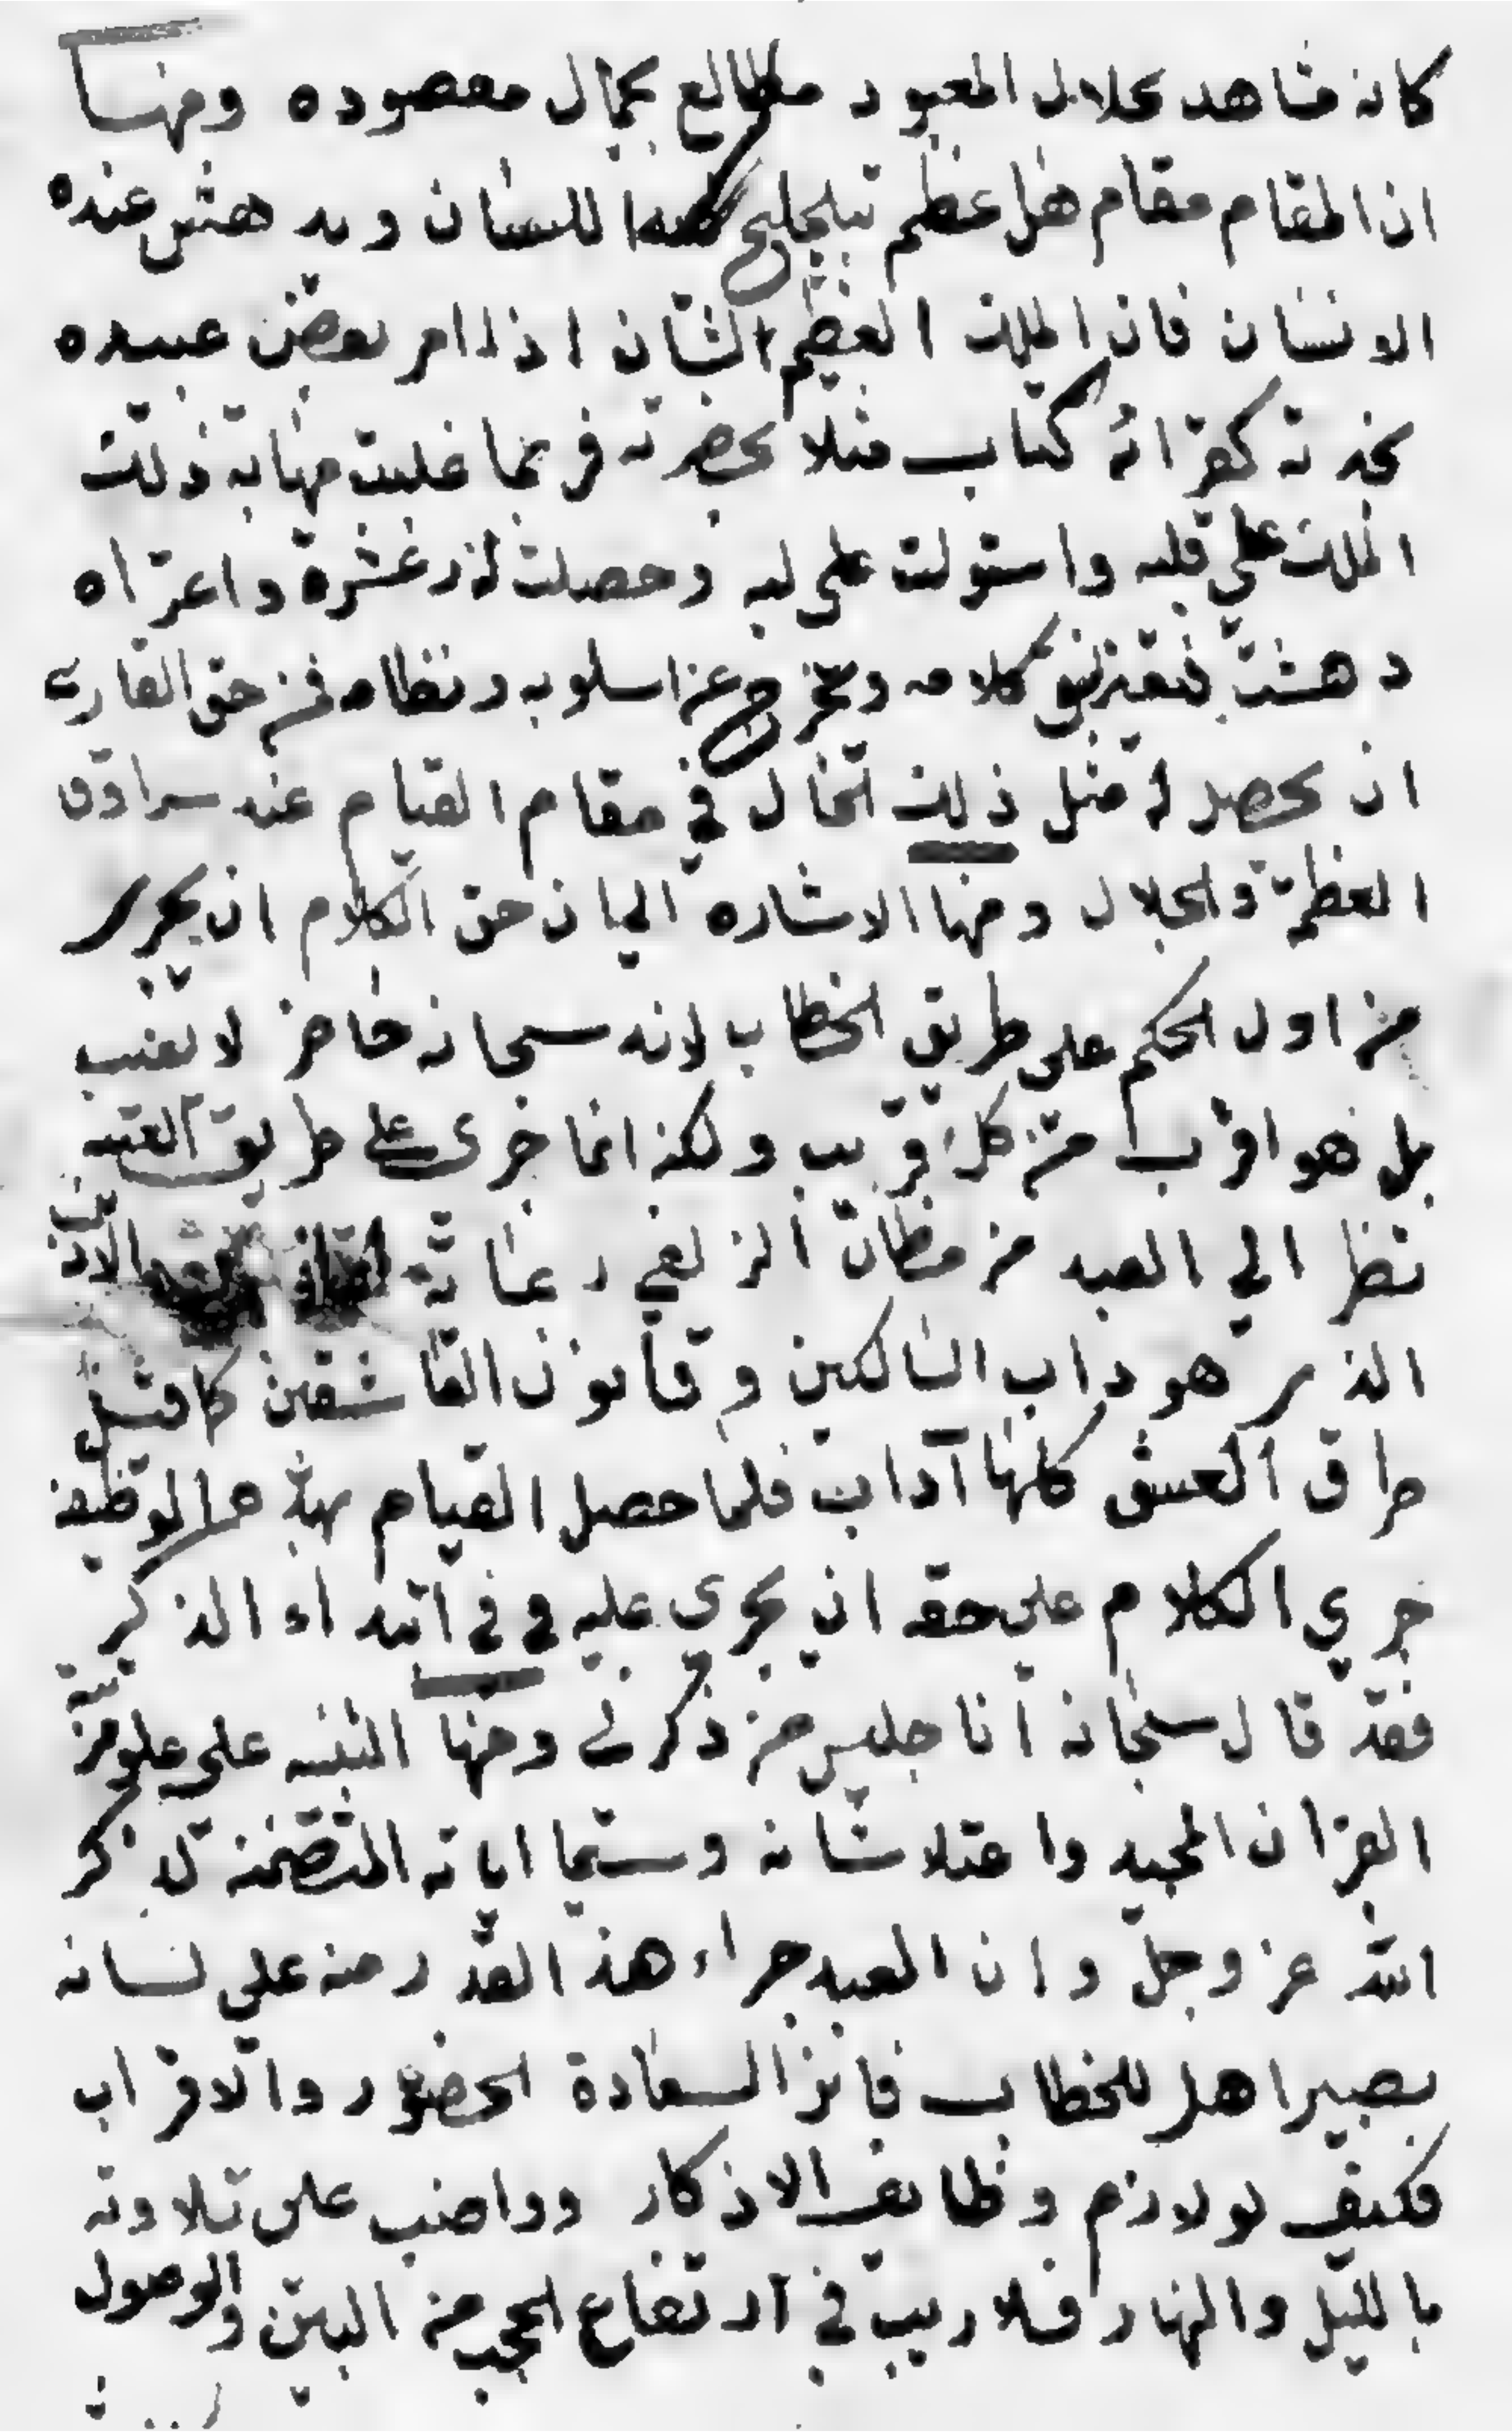 كانه مشاهد بجلال المعبود مطالع بجمال مقصوده ومنها
ان المقام مقام هائل عظيم تتلجلج اللسان ويدهش عنده
الانسان فان الملك العظيم الشان اذا امر بعض عبيده
بخدمته كقرائة كتاب مثلا بحضرته فربما غلبت مهابة ذلك
الملك علي قلبه واستولت على لبه وحصلت له رعشة واعتراه
دهشة فتغير نسق كلامه وخرج عن اسلوبه ونظامه فمن حق القارى
ان يحصل له مثل ذلك الحال في مقام القيام عند سرادق
العظمة والجلال ومنها الاشارة الى ان حق الكلام ان يجرى
من اول الحكم على طريق الخطاب لانه سبحانه حاضر لا يغيب
بل هو اقرب من كل قريب ولكنه انما جرى على طريق الغيبة
نظرا الي العبد من مظان الزلفي رعاية الادب
الذي هو داب السالكين وقانون العاشقين كما قيل
طرق العشق كلها آداب فلما حصل القيام بهذه الوظيفة
جري الكلام على حقه ان يجرى عليه وفي ابتداء الذكر
فقد قال سبحانه انا جليس من ذكرني ومنها التنبيه على علو مرتبة
القران المجيد واعتلا شانه وسيما اياته المتضمنة لذكر
الله عز وجل وان العبد باجراء هذا القدر منه على لسانه
يصير اهلا للخطاب فائزا لسعادة الحضور والاقتراب
فكيف لو لازم وظائف الاذكار وواضب على تلاوته
بالليل والنهار فلا ريب في ارتفاع الحجب من البين والوصول